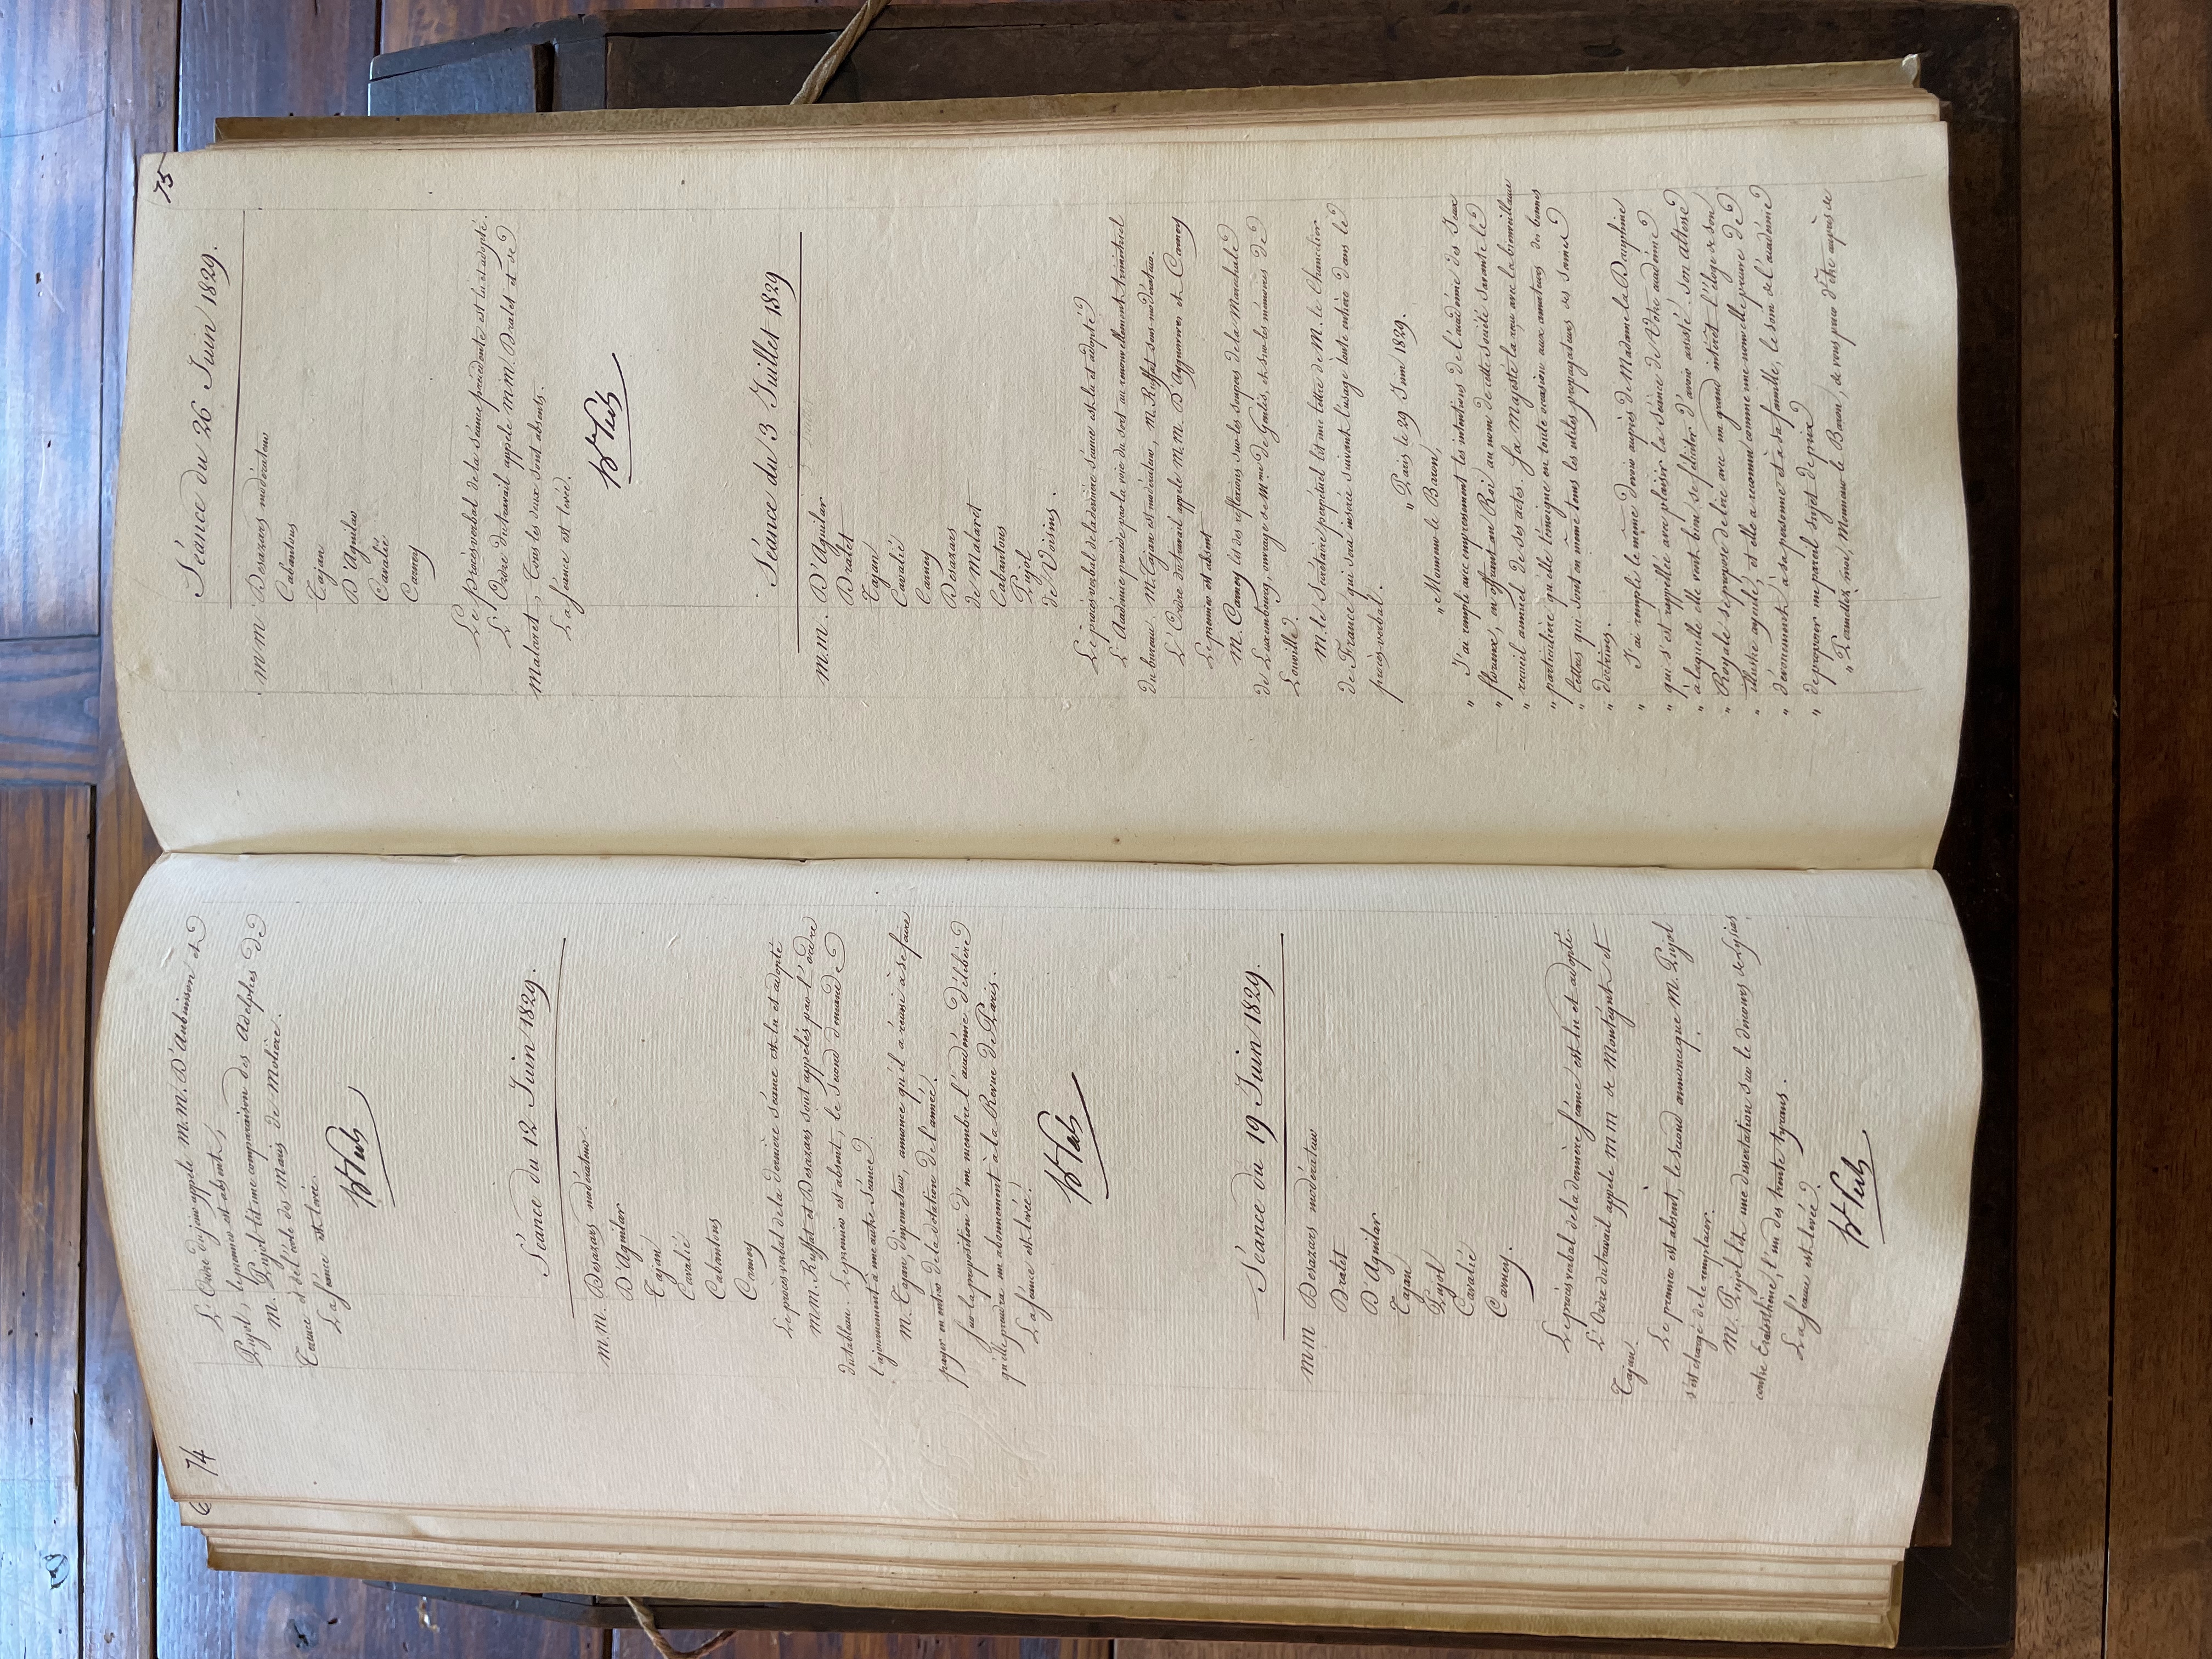 74
L'Ordre du jour appele M.M. D'Aubuisson et
Pujol, le premier est absent,
M. Pujol lit une comparaison des Adelphes de
Térence et de l'école des Maris de Molière.
La séance est levée.
Séance du 12 Juin 1829.
M.M. Desazars modérateur.
D'Aguilar
Tajan
Cavalié
Cabantous
Carney
Le procès verbal de la dernière séance est lu et adopté
M.M. Ruffat et Desazars sont appelés par l'ordre
du tableau. Le premier est absent, le second demande
l'ajournement à une autre séance.
M. Tajan, dispensateur, annonce qu'il a réussi à se faire
payer en entier de la dotation de l'année.
Sur la proposition d'un membre l'académie délibère
qu'elle prendra un abonnement à la Revue de Paris.
La séance est levée.
Séance du 19 Juin 1829.
MM Desazars modérateur
Dralet
D'Aguilar
Tajan
Pujol
Cavalié
Carney.
Le procès verbal de la dernière séance est lu et adopté.
L'Ordre du travail appele MM de Montégut et
Tajan.
Le premier est absent, le second annonce que M. Pujol
s'est chargé de le remplacer.
M. Pujol lit une dissertation sur le discours de Lysias
contre Eratosthène, l'un des trente tyrans.
La séance est levée.
75
Séance du 26 Juin 1829.
MM Desazars modérateur
Cabantous
Tajan
D'Aguilar
Cavalié
Carney
Le procès verbal de la séance précédente est lu et adopté.
L'Ordre du travail appele M.M. Dralet et de
Malaret, Tous les deux sont absents.
La séance est levée.
Séance du 3 Juillet 1829
M.M. D'Aguilar
Dralet
Tajan
Cavalié
Carney
Desazars
de Malaret
Cabantous
Pujol
de Voisins.
Le procès verbal de la dernière séance est lu et adopté
L'Académie procède par la voie du sort au renouvellement trimestriel
du bureau. M. Tajan est modérateur, M. Ruffat sous-modérateur.
L'Ordre du travail appele M.M. D'Ayguesvives et Carney
Le premier est absent
M. Carney lit des réflexions sur les soupers de la Maréchale
de Luxembourg, ouvrage de Mme de Genlis, et sur les mémoires de
M. le Secrétaire perpétuel lit une lettre de M. le Chancelier
de France qui sera insérée suivant l'usage toute entière dans le
procès verbal.
" Paris le 29 Juin 1829.
" Monsieur le Baron,
" J'ai rempli avec empressement les intentions de l'académie des Jeux
" floraux, en offrant au Roi au nom de cette société savante le
" recueil annuel de ses actes. Sa Majesté l'a reçu avec la bienveillance
" particulière qu'elle témoigne en toute occasion aux amateurs des bonnes
" lettres qui sont en même tems les utiles propagateurs des saines
" doctrines.
" J'ai rempli le même devoir auprès de Madame la Dauphine
" qui s'est rappellée avec plaisir la séance de Votre académie
" à laquelle elle veut bien se féliciter d'avoir assisté. Son altesse
" Royale se propose de lire avec un grand intérêt l'éloge de son
" illustre ayeule, et elle a reconnu comme une nouvelle preuve de
" dévouement à sa personne et à sa famille, le soin de l'académie
" de proposer un pareil sujet de prix.
" Permettez moi, Monsieur le Baron, de vous prier d'être auprès de